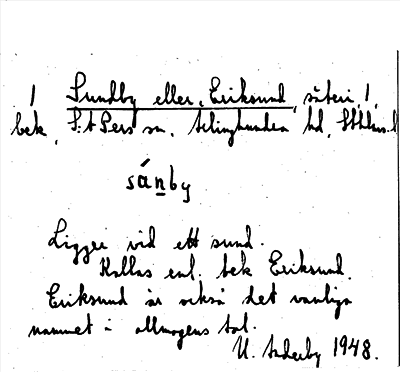 1 Sundby eller Eriksund, säteri, 1,
bek, S:t Pers sn, Ärlinghundra hd, Sthlms l
sánby
Ligger vid ett sund.
Kallas enl. bek Eriksund.
Eriksund är också det vanliga
namnet i allmogens tal.
U. Söderby 1948.